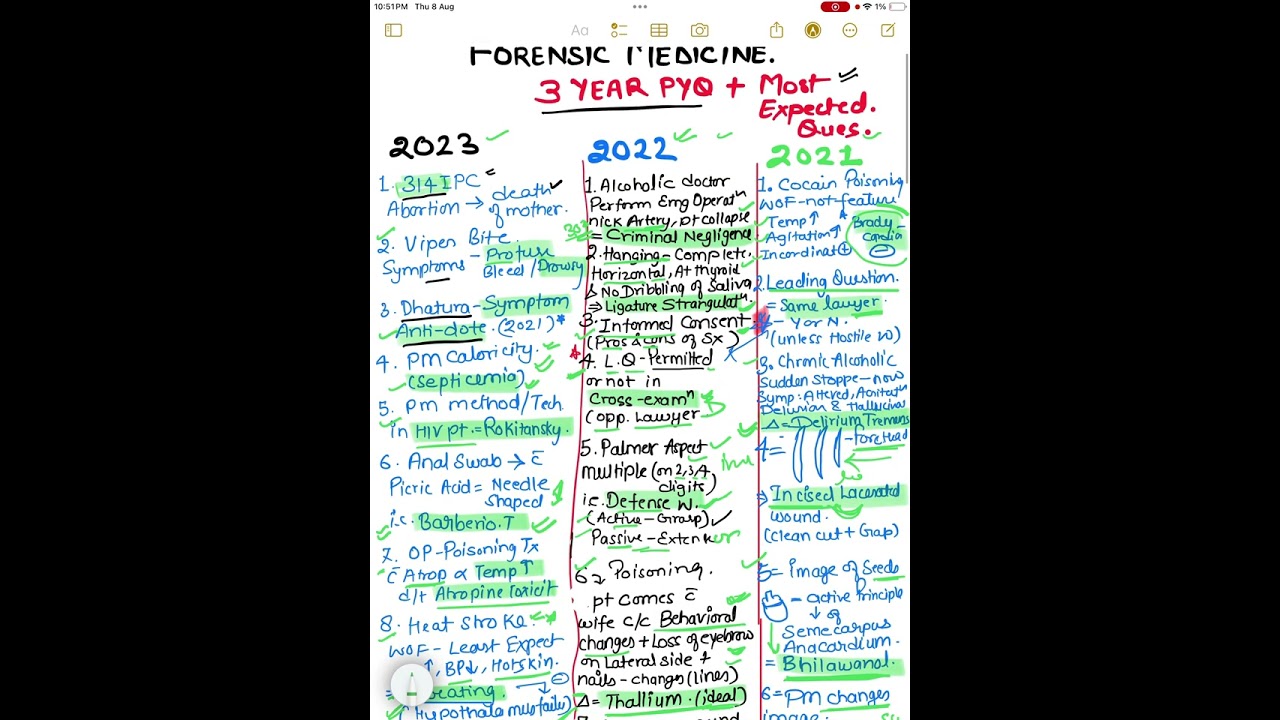 10:51 PM Thu 8 Aug
1%
Aa
FORENSIC MEDICINE.
3 YEAR PYQ + Most
Expected.
Ques.
2023
1. 314 IPC
Abortion → death
of mother.
2. Viper Bite
Symptoms - Profuse
Bleed / Drowsy
3. Dhatura - Symptom
Anti-dote. (2021)*
4. PM Caloricity.
(Septicemia)
5. PM method/Tech
in HIV pt. = Rokitansky.
6. Anal Swab → c̄
Picric Acid = Needle
Shaped
i.e. Barberio.T
7. OP-Poisoning Tx
c̄ Atrop α Temp↑
d/t Atropine Toxicit
8. Heat Stroke.
WOF - Least Expect
↑, BP↓, Hotskin.
(Hypothalamus fails)
2022
1. Alcoholic doctor
Perform Emg Operatⁿ
nick Artery, pt collapse
= Criminal Negligence
2. Hanging - Complete,
Horizontal, At thyroid
& No Dribbling of Saliva
⇒ Ligature Strangulatⁿ.
3. Informed Consent
(Pros & cons of Sx)
4. L.Q - Permitted
or not in
Cross-examⁿ
(opp. Lawyer
5. Palmer Aspect
multiple (on 2,3,4
digits)
i.e. Defense W.
(Active - Grasp)
Passive - Exten
6. Poisoning.
pt comes c̄
wife c/c Behavioral
changes + Loss of eyebrow
on Lateral side +
nails - changes (lines)
Δ = Thallium. (ideal)
2021
1. Cocain Poisoning
WOF - not - feature
Temp ↑
Agitation ↑
Incordinat +
Brady-
cardia
2. Leading Question.
= Same lawyer.
- Y or N.
(unless Hostile W)
3. Chronic Alcoholic
Sudden Stoppe - now
Symp: Altered, Agitatⁿ
Delusion & Hallucina
Δ = Delirium Tremens
4 = - forehead
⇒ Incised Lacerated
wound.
(clean cut + Gap)
5 = image of Seeds
- active Principle
↓ of
Semecarpus
Anacardium.
= Bhilawanol.
6 = PM changes
image.